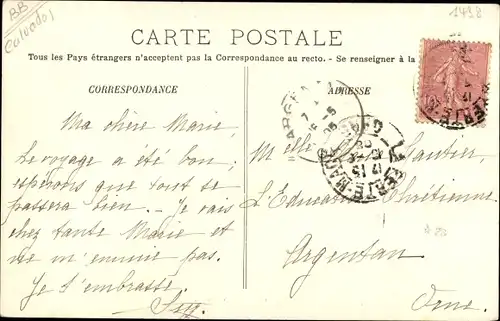 BB
Calvados
1498
CARTE POSTALE
Tous les Pays étrangers n'acceptent pas la Correspondance au recto. - Se renseigner à la
CORRESPONDANCE
ADRESSE
Ma chère Marie,
Le voyage a été bon,
espérons que tout se
passera bien. - Je vais
chez tante Marie et
ne m'ennuie pas.
Je t'embrasse.
Melle Sautier
L'Education Chrétienne
Argentan
Orne